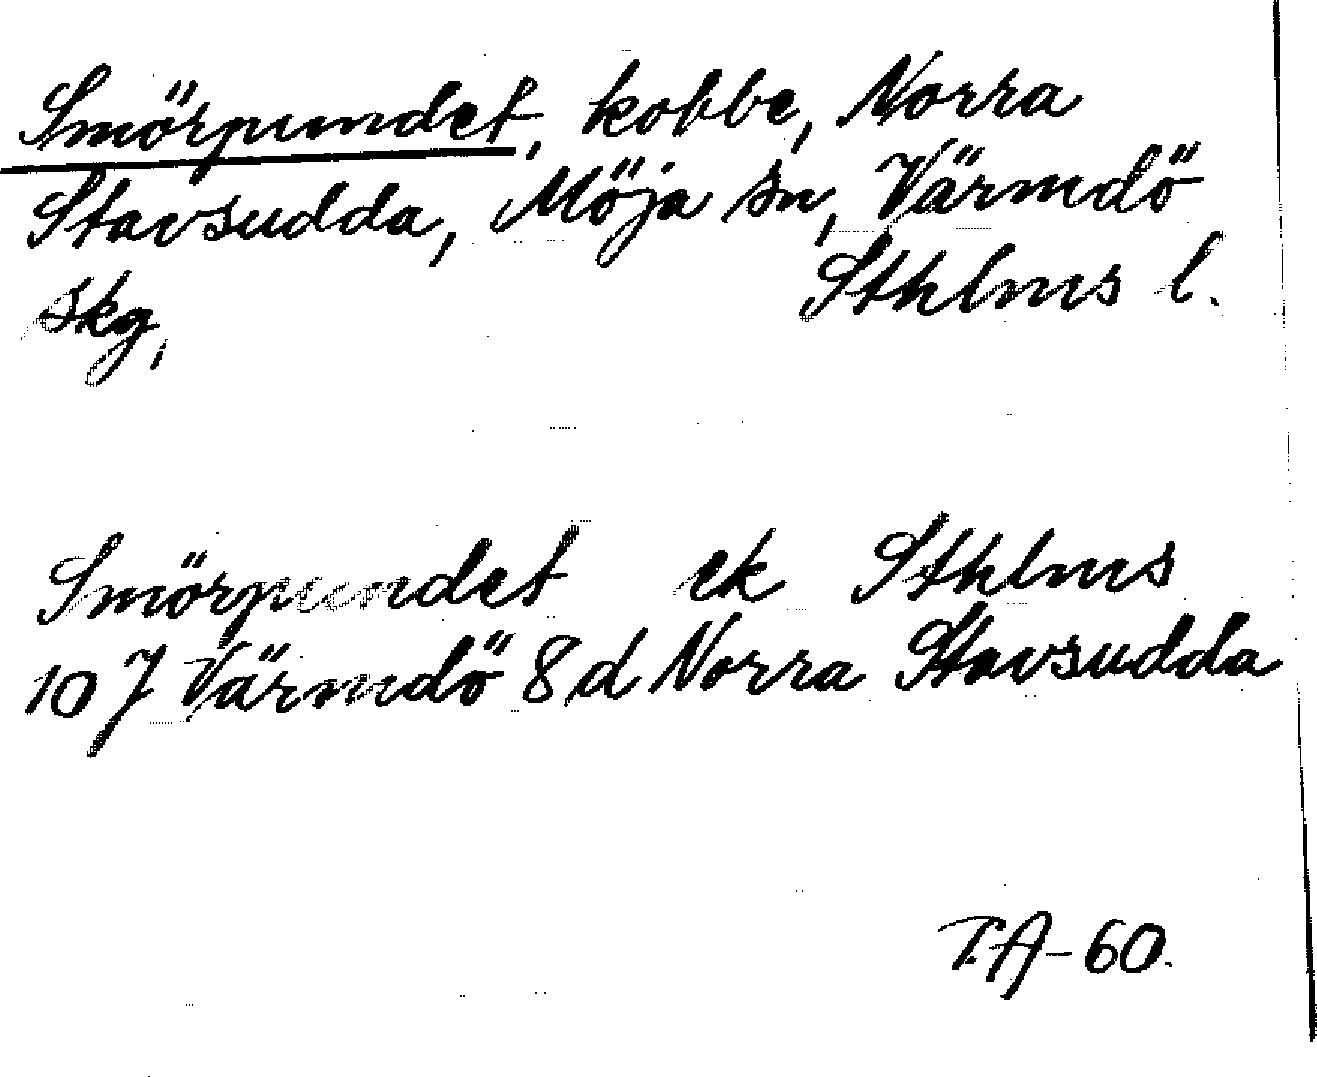 Smörpundet, kobbe, Norra
Stavsudda, Möja sn, Värmdö
skg, Sthlms l.
Smörpundet ek Sthlms
10 J Värmdö 8 d Norra Stavsudda
T.A-60.